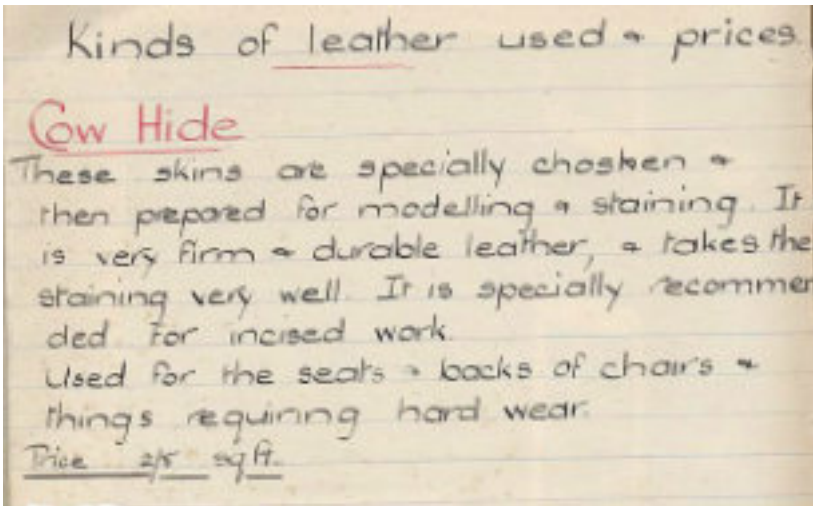 Kinds of leather used & prices
Cow Hide
These skins are specially chosken &
then prepared for modelling & staining. It
is very firm & durable leather, & takes the
staining very well. It is specially recommen
ded for incised work.
Used for the seats & backs of chairs &
things requiring hard wear.
Price 2/5 sq ft.